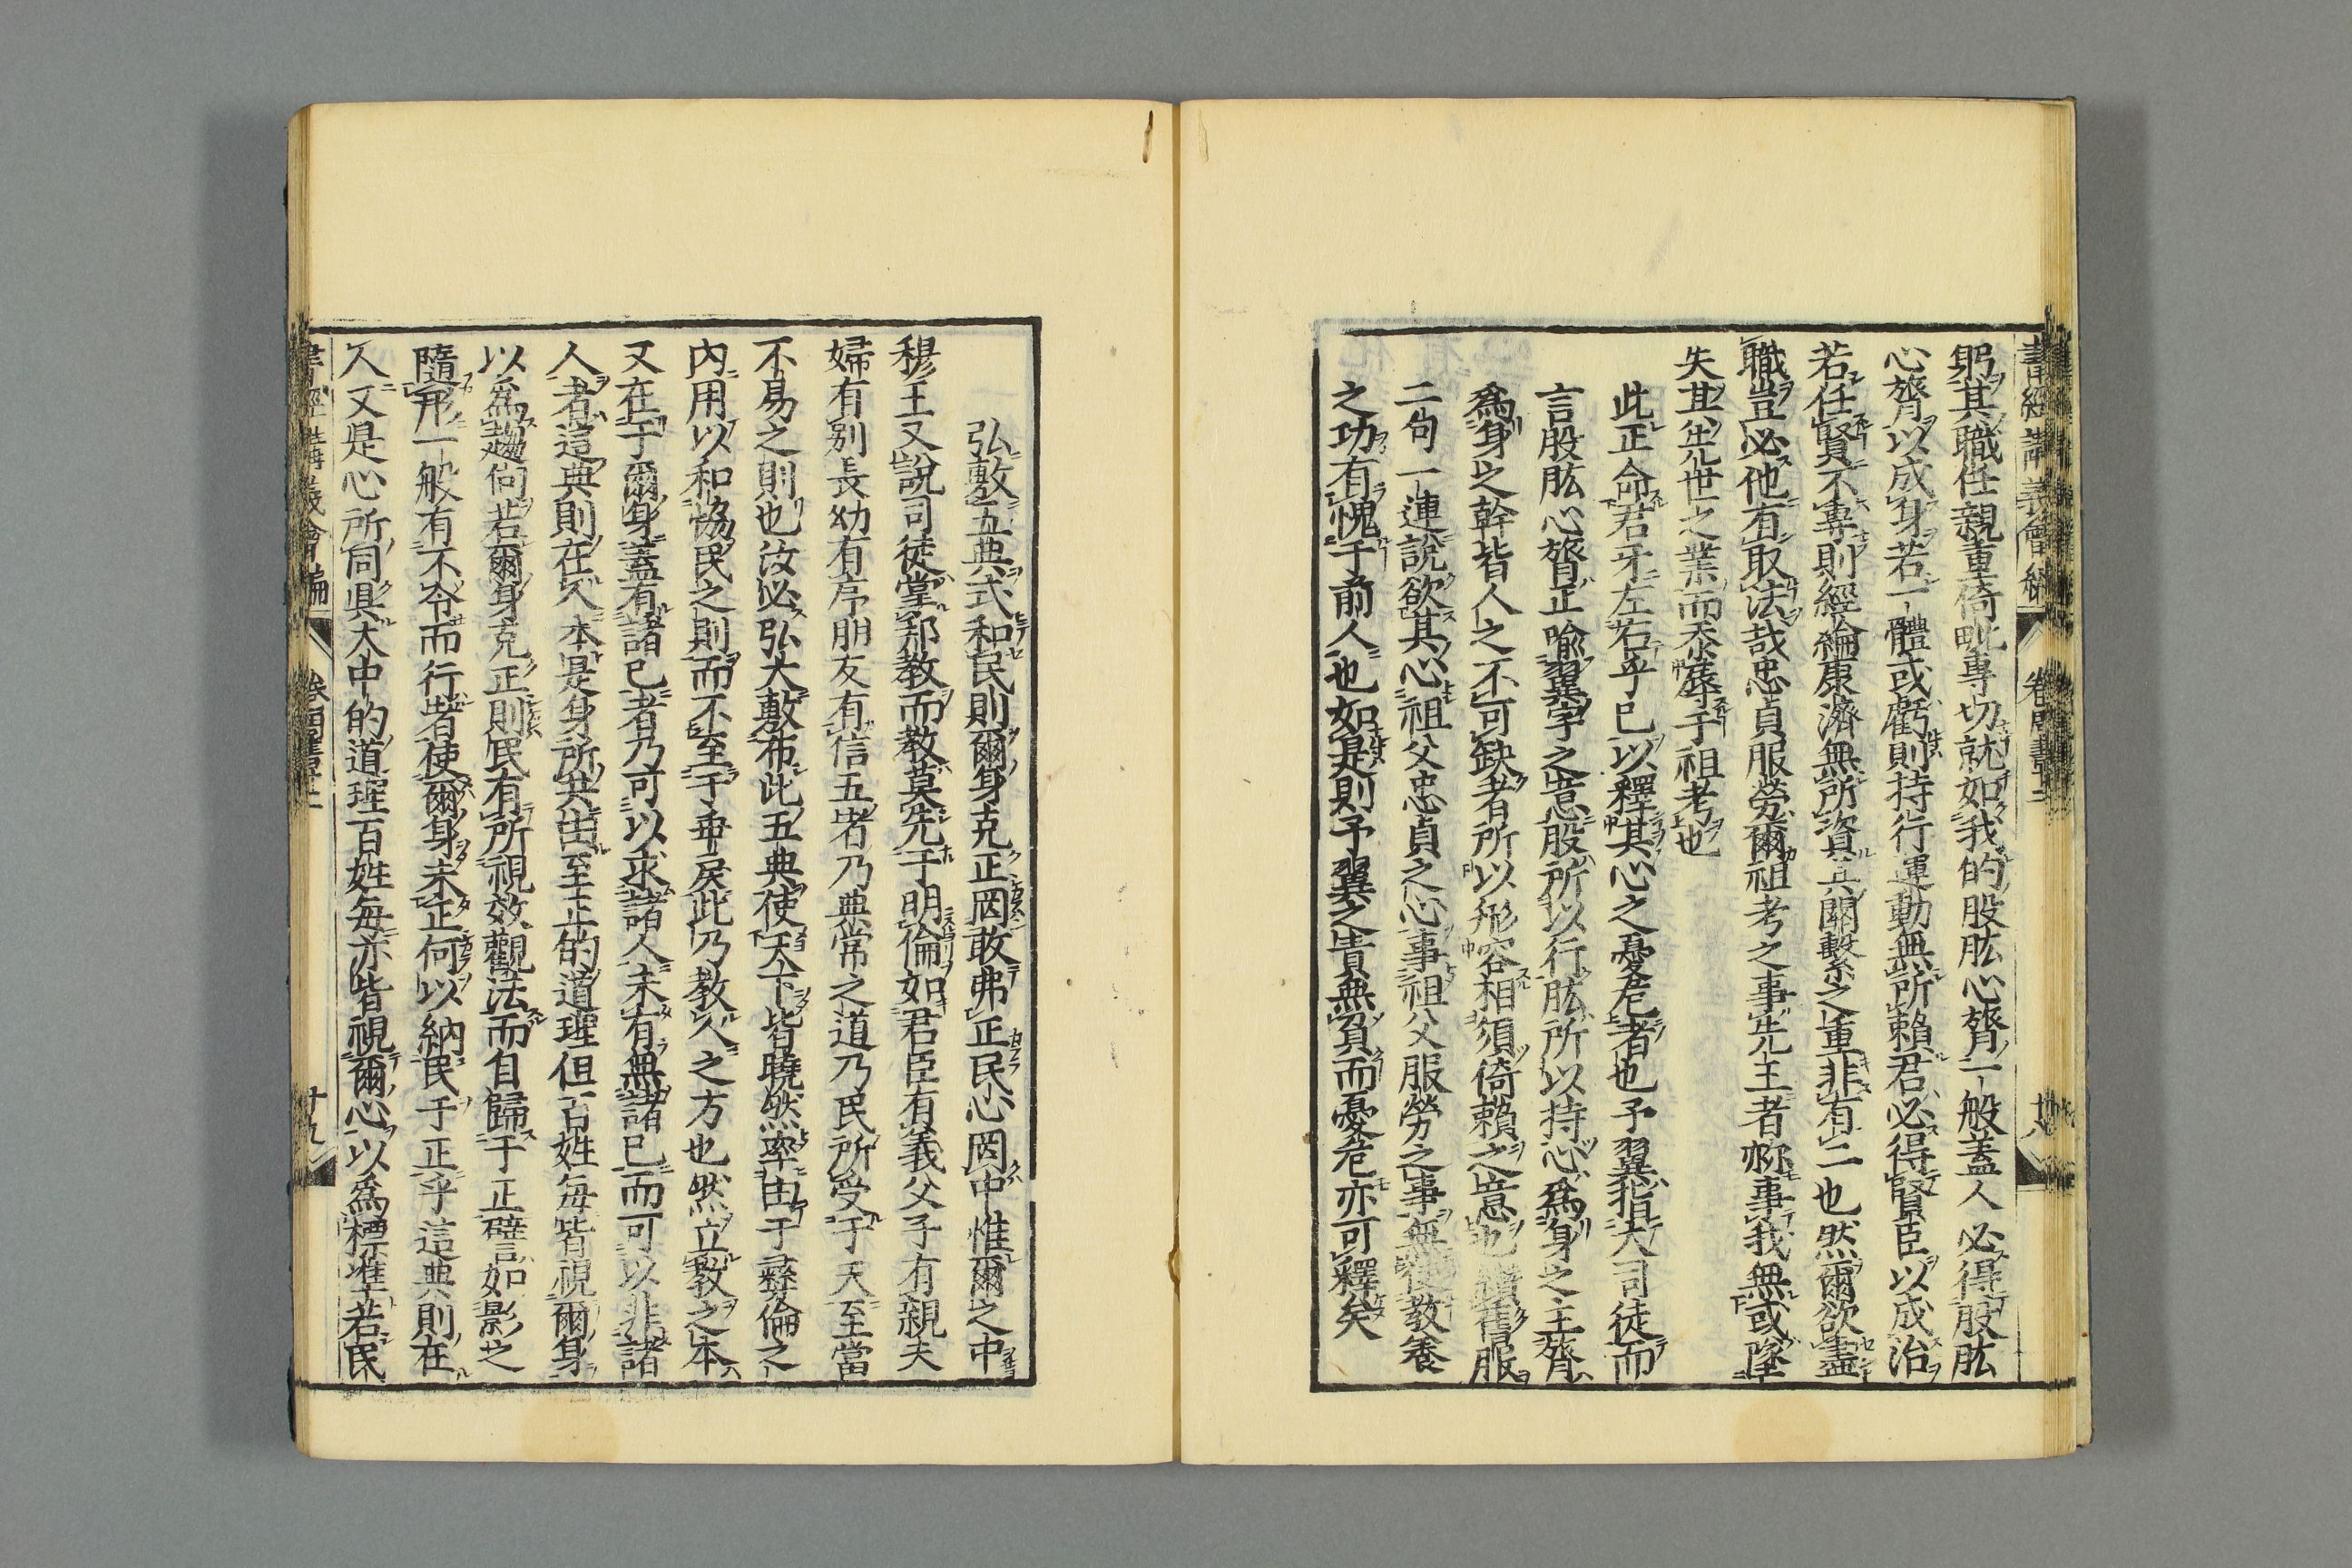 書經講義會編 卷周書十二 廿八
躬其職任親重倚毗專切就如我的股肱心膂一般蓋人必得股肱
心膂以成身若一體或虧則持行運動無所賴君必得賢臣以成治
若任賢不專則經綸康濟無所資其關繫之重非有二也然爾欲盡
職豈必他有取法哉忠貞服勞爾祖考之事先王者你事我無或墜
失其先世之業而忝辱于祖考也
此正命君牙左右乎已以釋其心之憂危者也予翼指大司徒而
言股肱心膂正喻翼字之意股所以行肱所以持心爲身之主膂
爲身之幹皆人之不可缺者所以形容相須倚賴之意也纘舊服
二句一連說欲其心祖父忠貞之心事祖父服勞之事無使教養
之功有愧于前人也如是則予翼之責無負而憂危亦可釋矣
弘敷五典式和民則爾身克正罔敢弗正民心罔中惟爾之中
穆王又說司徒掌邦教而教莫先于明倫如君臣有義父子有親夫
婦有別長幼有序朋友有信五者乃典常之道乃民所受于天至當
不易之則也汝必弘大敷布此五典使天下皆曉然率由于彝倫之
內用以和恊民之則而不至于乖戾此乃教人之方也然立教之本
又在于爾身蓋有諸己者乃可以求諸人未有無諸己而可以非諸
人者這典則在人本是身所共由至正的道理但百姓每皆視爾身
以爲趨向若爾身克正則民有所視效觀法而自歸于正譬如影之
隨形一般有不令而行者使爾身未正何以納民于正乎這典則在
人又是心所同具大中的道理百姓每亦皆視爾心以爲標準若民
書經講義會編 卷周書十二 廿九